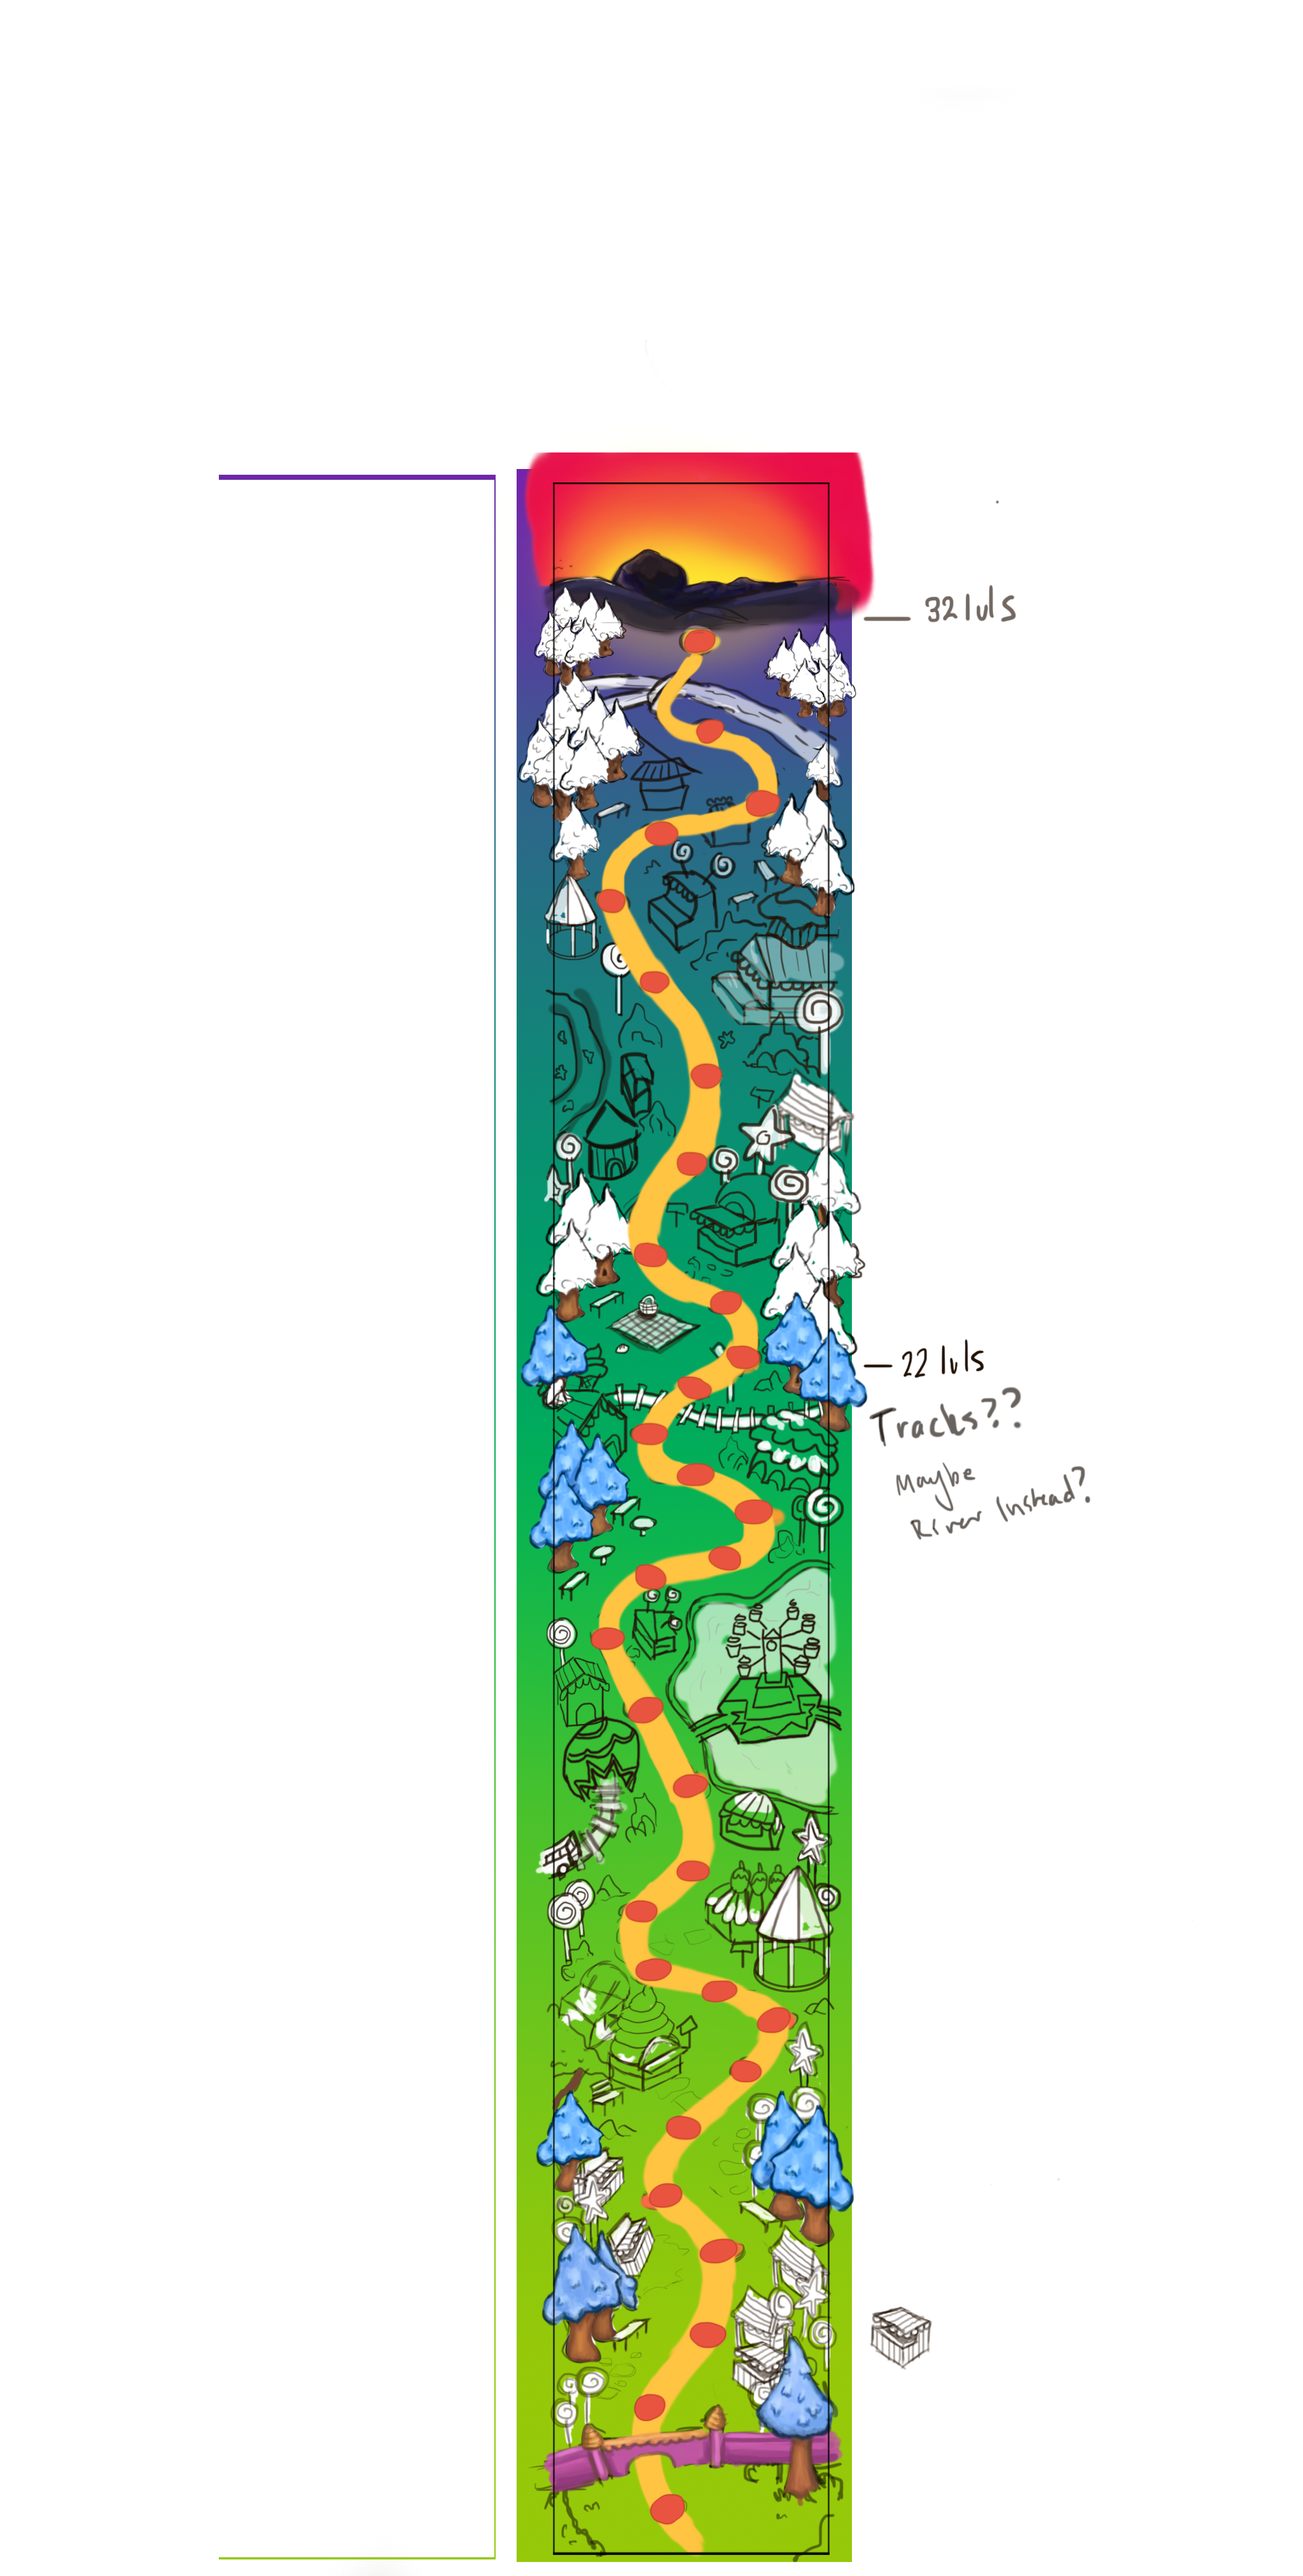 32 lvls
22 lvls
Tracks??
Maybe
River Instead?